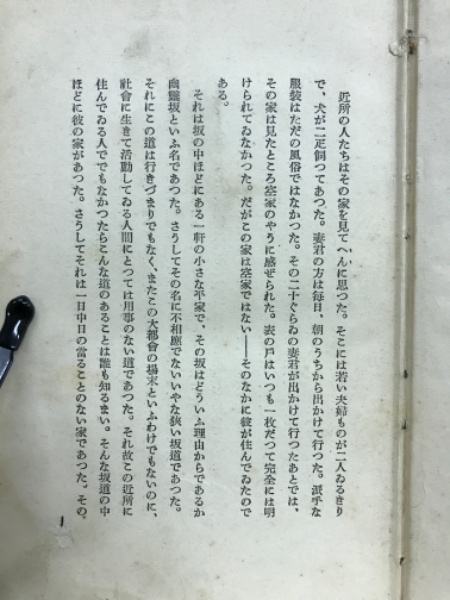 近所の人たちはその家を見てへんに思つた。そこには若い夫婦ものが二人ゐるきり
で、犬が二疋飼つてあつた。妻君の方は毎日、朝のうちから出かけて行つた。派手な
服装はただの風俗ではなかつた。その二十ぐらゐの妻君が出かけて行つたあとでは、
その家は見たところ空家のやうに感ぜられた。表の戸はいつも一枚だつて完全には明
けられてゐなかつた。だがこの家は空家ではない――そのなかに彼が住んでゐたので
ある。
それは坂の中ほどにある一軒の小さな平家で、その坂はどういふ理由からであるか
幽霊坂といふ名であつた。さうしてその名に不相應でないいやな狹い坂道であつた。
それにこの道は行きづまりでもなく、またこの大都會の場末といふわけでもないのに、
社會に生きて活動してゐる人間にとつては用事のない道であつた。それ故この近所に
住んでゐる人ででもなかつたらこんな道のあることは誰も知るまい。そんな坂道の中
ほどに彼の家があつた。さうしてそれは一日中日の當ることのない家であつた。その、
1